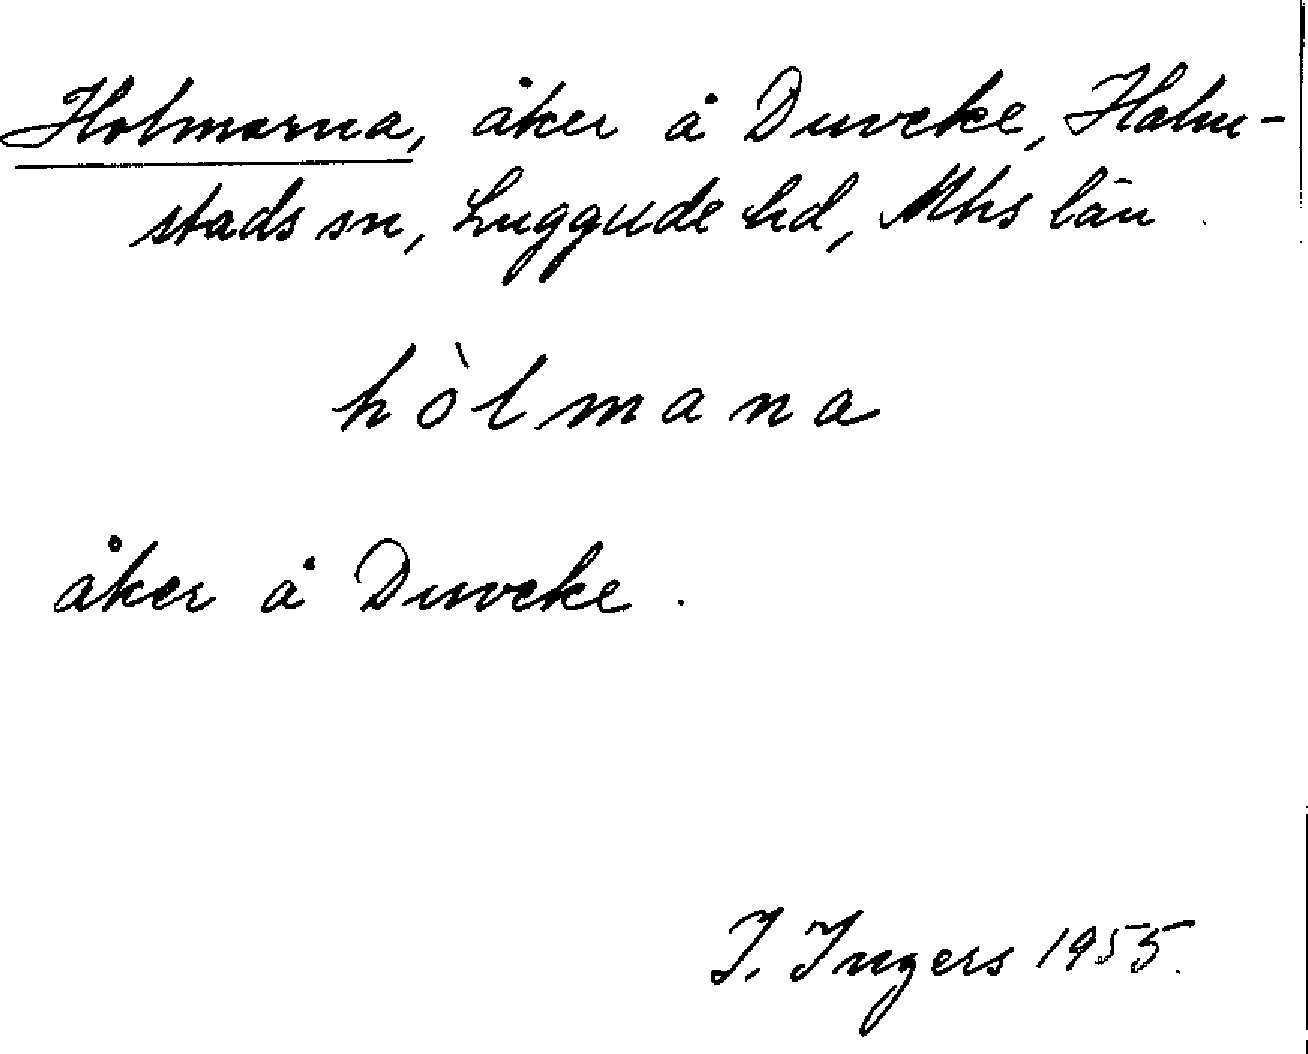 Holmarna, åker å Duveke, Halm-
stads sn, Luggude hd, Mhs län
hòlmana
åker å Duveke.
I. Ingers 1955.